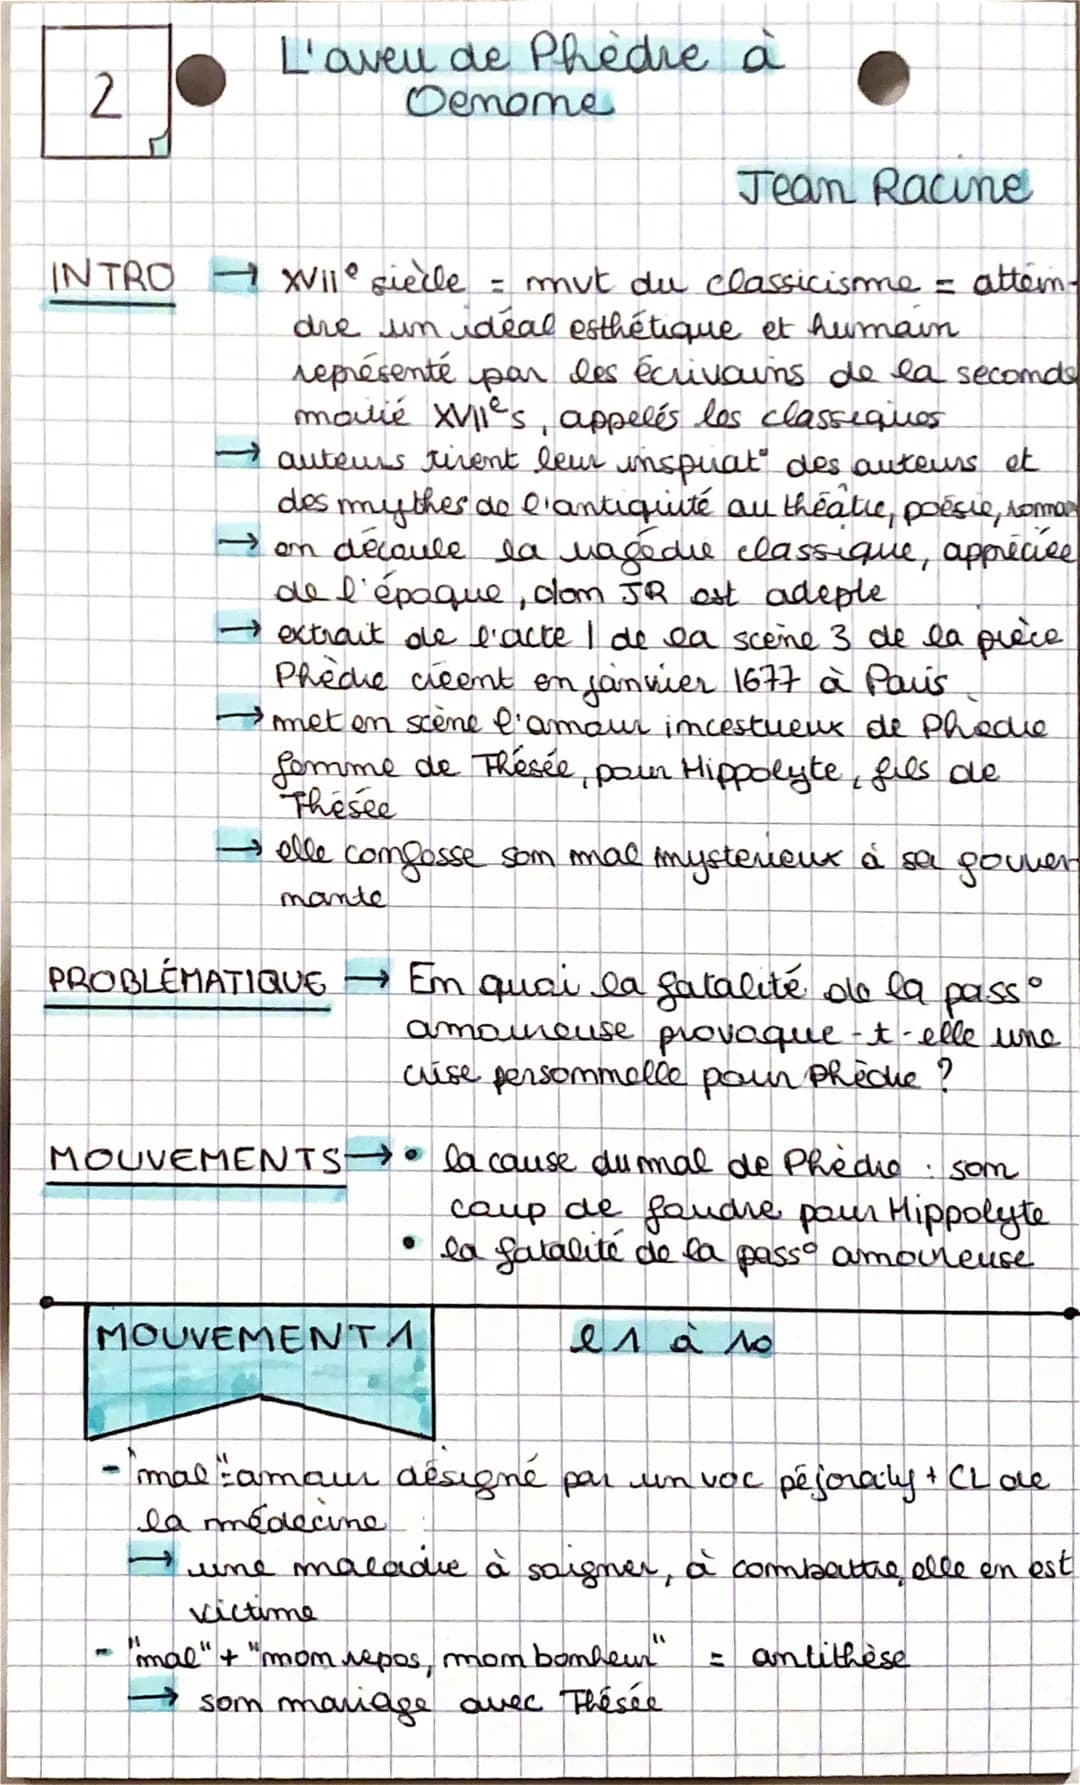 2
L'aveu de Phèdre à
Oenone
Jean Racine
INTRO → XVIIe siècle = mvt du classicisme = attein-
dre un idéal esthétique et humain
représenté par les écrivains de la seconde
moitié XVIIes, appelés les classiques
→ auteurs tirent leur inspirat° des auteurs et
des mythes de l'antiquité au théâtre, poésie, roman
→ en découle la tragédie classique, appréciée
de l'époque, dont JR est adepte
→ extrait de l'acte 1 de la scène 3 de la pièce
Phèdre créent en janvier 1677 à Paris
→ met en scène l'amour incestueux de Phèdre
femme de Thésée, pour Hippolyte, fils de
Thésée
→ elle confesse son mal mysterieux à sa gouver-
nante
PROBLÉMATIQUE → En quoi la fatalité de la pass°
amoureuse provoque-t-elle une
crise personnelle pour Phèdre ?
MOUVEMENTS → • la cause du mal de Phèdre : son
coup de foudre pour Hippolyte
• la fatalité de la pass° amoureuse
MOUVEMENT 1 l 1 à 10
- "mal" = amour désigné par un voc péjoratif + CL de
la médecine
→ une maladie à soigner, à combattre, elle en est
victime
- "mal" + "mon repos, mon bonheur" = antithèse
→ son mariage avec Thésée